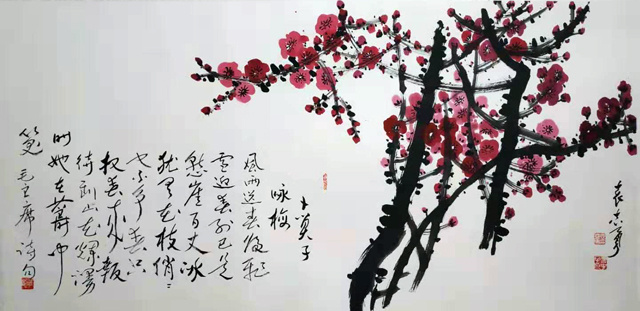 卜算子
咏梅
風雨送春归飛
雪迎春到已是
懸崖百丈冰
犹有花枝俏〻
也不争春只
把春来報
待到山花爛漫
时她在叢中
笑 毛主席诗句
袁志